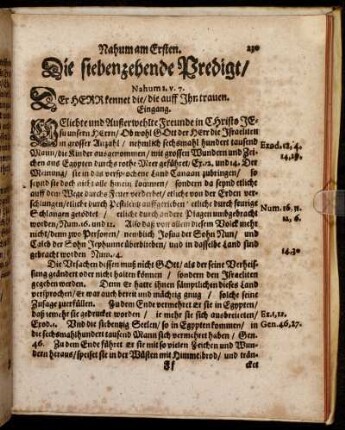 Nahum am Ersten. 230
Die siebenzehende Predigt/
Nahum 1. v. 7.
Der HERR kennet die/die auff Jhn trauen.
Eingang.
GEliebte und Außerwehlte Freunde in Christo JE-
su unserm Herrn/ Ob wohl GOtt der HErr die Jsraeliten
in grosser Anzahl / nehmlich sechsmahl hundert tausend
Mann/die Kinder ausgenommen/ mit grossen Wundern und Zei-
chen aus Egypten durchs rothe Meer geführet/ Ex. 12. und 14. Der
Meinung/sie ins versprochene Land Canaan zubringen/ so
seynd sie doch nicht alle hinein kommen/ sondern da seynd etliche
auff den Wege durchs Feuer verderbet/ etliche von der Erden ver-
schlungen/etliche durch Pestilentz auffgerieben/ etliche durch feurige
Schlangen getödtet/ etliche durch andere Plagen umbgebracht
worden/Num. 16. und 11. Also daß von allen diesem Volck mehr
nicht/denn zwo Personen/ nemblich Josua der Sohn Nun/ und
Caleb der Sohn Jephunne überblieben/ und in dasselbe Land sind
gebracht worden Num. 14.
Exod. 12, 4.
14, 19.
Num. 16. n.
11, 6.
14. 30
Die Ursachen dessen muß nicht GOtt/ als der seine Verheis-
sung geändert oder nicht halten können/ sondern den Jsraeliten
gegeben werden. Denn Er hatte ihnen sämptlichen dieses Land
versprochen/ Er war auch bereit und mächtig gnug/ solche seine
Zusage zuerfüllen. Zu dem Ende vermehret er sie in Egypten/
daß je mehr sie gedrucket worden/ je mehr sie sich ausbreiteten/
Exod. 1. Und die siebentzig Seelen/ so in Egypten kommen/ in
die sechsmahlhundert tausend Mann sich vermehret haben/ Gen.
46. Zu dem Ende führet Er sie mit so vielen Zeichen und Wun-
dern heraus/speiset sie in der Wüsten mit Himmelbrod/ und trän-
Ex. 1, 12.
Gen. 46, 27.
Ff cket